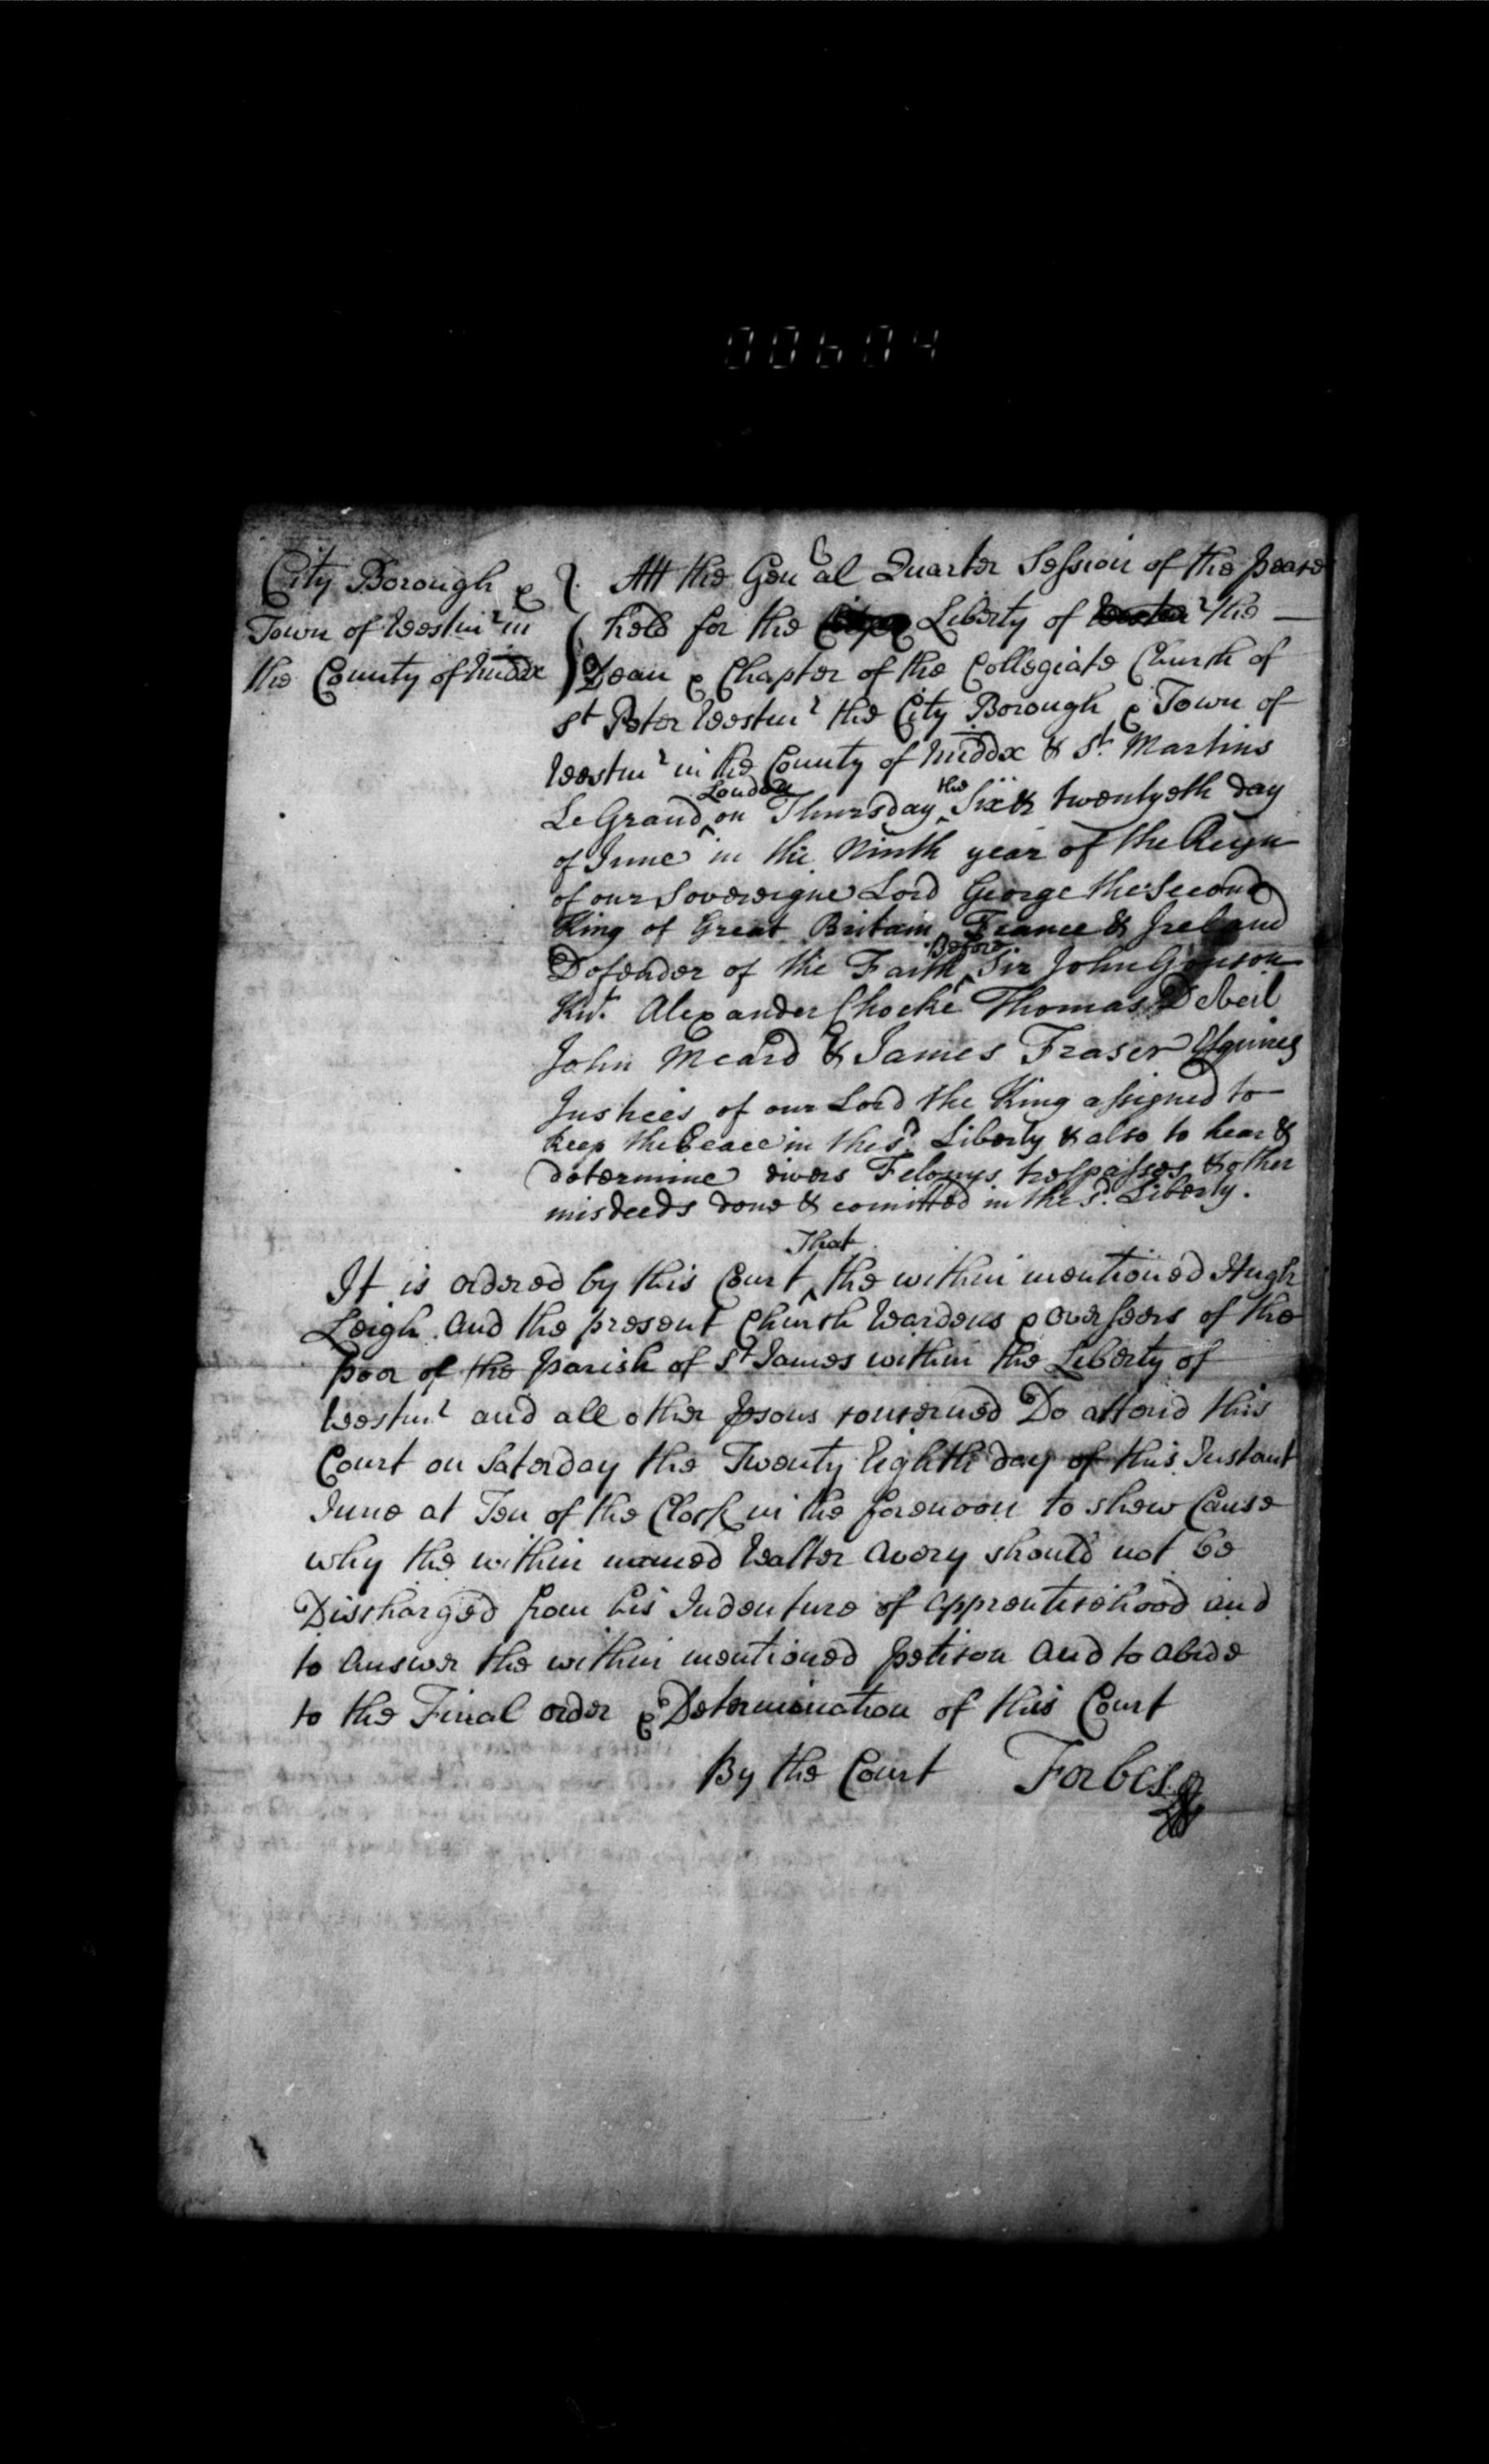 00604
City Borough &
Town of Westmr in
the County of Middx
Att the Genal Quarter Session of the peace
held for the Liberty of Westmr the
Dean & Chapter of the Collegiate Church of
St Peter Westmr the City Borough & Town of
Westmr in the County of Middx & St. Martins
Le Grand London on Thursday the Six & twentyeth day
of June in the Ninth year of the Reign
of our Sovereigne Lord George the Second
King of Great Britain France & Ireland
Defender of the Faith Before Sir John Gonson
Knt. Alexander Chocke Thomas DeVeil
John Meard & James Fraser Esquires
Justices of our Lord the King assigned to
keep the Peace in the sd. Liberty & also to hear &
determine divers Felonys trespasses & other
misdeeds done & comitted in the sd. Liberty.
It is ordered by this Court That the within mentioned Hugh
Leigh and the present Church Wardens & Overseers of the
poor of the parish of St James within the Liberty of
Westmr and all other psons concerned Do attend this
Court on Saterday the Twenty Eighth day of this Instant
June at Ten of the Clock in the forenoon to shew Cause
why the within named Walter Avery should not be
Discharged from his Indenture of Apprentisehood and
to Answer the within mentioned petition And to abide
to the Final order & Determination of this Court
By the Court Forbes